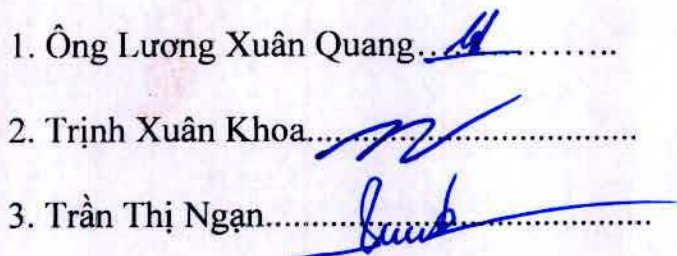 1. Ông Lương Xuân Quang....................
2. Trịnh Xuân Khoa....................................
3. Trần Thị Ngạn..........................................